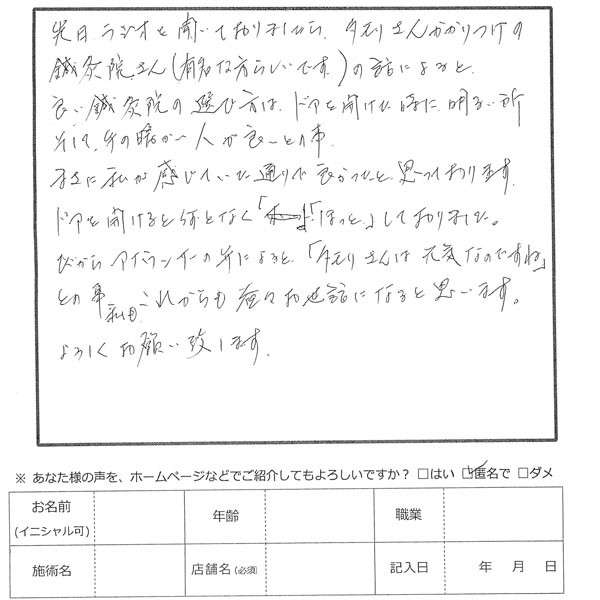 先日ラジオを聞いておりましたら、タモリさんかかりつけの
鍼灸院さん(有名な方らしいです。)の話によると、
良い鍼灸院の選び方は、ドアを開けた時に、明るい所
そして、その暖かい人が良いとの事。
まさに私が感じていた通りで良かったと、思っております。
ドアを開けると何となく「ほっと」しておりました。
だから アナウンサーの方によると、「タモリさんは元気なのですね」
との事 私も これからも益々お世話になると思います。
よろしくお願い致します。
※ あなた様の声を、ホームページなどでご紹介してもよろしいですか? □はい ☑匿名で □ダメ
お名前 年齢 職業
(イニシャル可)
施術名 店舗名(必須) 記入日 年 月 日